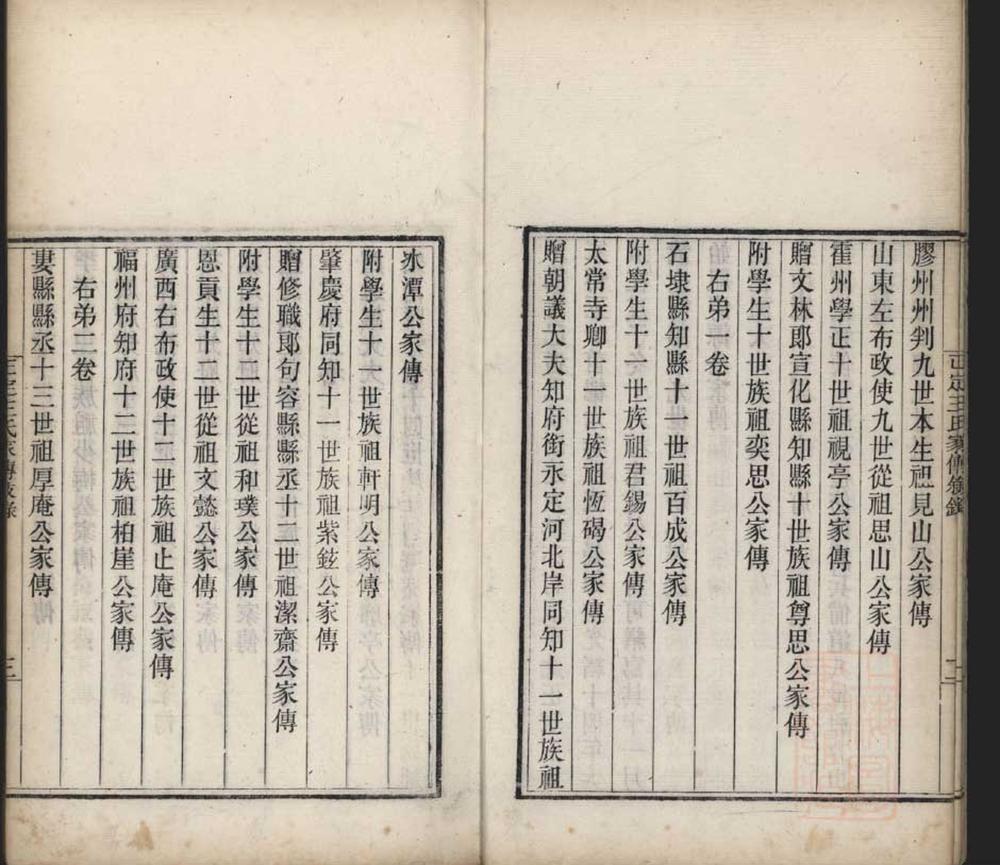 正定王氏家傳敘錄
二
膠州州判九世本生祖見山公家傳
山東左布政使九世從祖思山公家傳
霍州學正十世祖視亭公家傳
贈文林郎宣化縣知縣十世族祖尊思公家傳
附學生十世族祖奕思公家傳
右弟一卷
石埭縣知縣十一世祖百成公家傳
附學生十一世族祖君錫公家傳
太常寺卿十一世族祖恆碣公家傳
贈朝議大夫知府銜永定河北岸同知十一世族祖
冰潭公家傳
附學生十一世族祖軒明公家傳
肇慶府同知十一世族祖紫鉉公家傳
贈修職郎句容縣縣丞十二世祖潔齋公家傳
附學生十二世從祖和璞公家傳
恩貢生十二世從祖文懿公家傳
廣西右布政使十二世族祖止庵公家傳
福州府知府十二世族祖柏崖公家傳
右弟二卷
婁縣縣丞十三世祖厚庵公家傳
正定王氏家傳敘錄
三